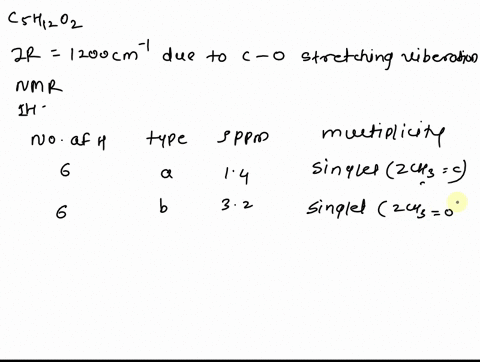 C5H12O2
IR = 1200cm-1 due to C-O stretching viberation
NMR
1H-
No. of H type δ ppm multiplicity
6 a 1.4 Singlet (2CH3 = C)
6 b 3.2 Singlet (2CH3 = O